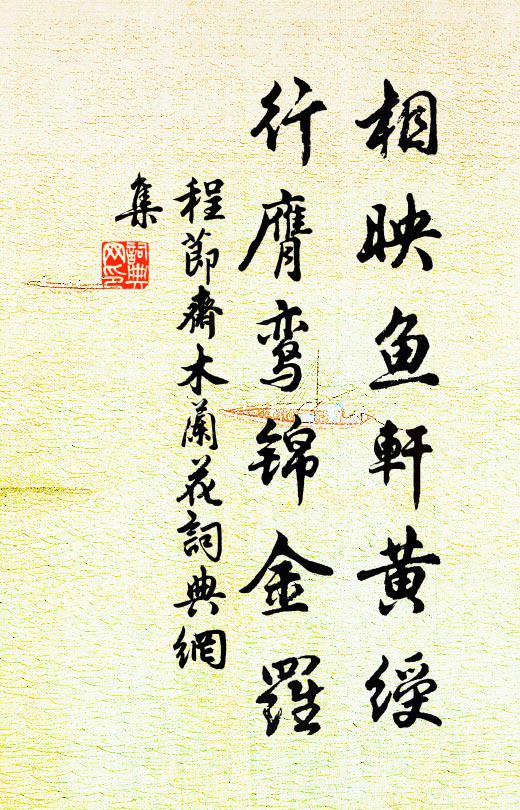 相映鱼軒黄綬
行膺鸾锦金羅
程節齋木蘭花詞典網
集
詞典网印